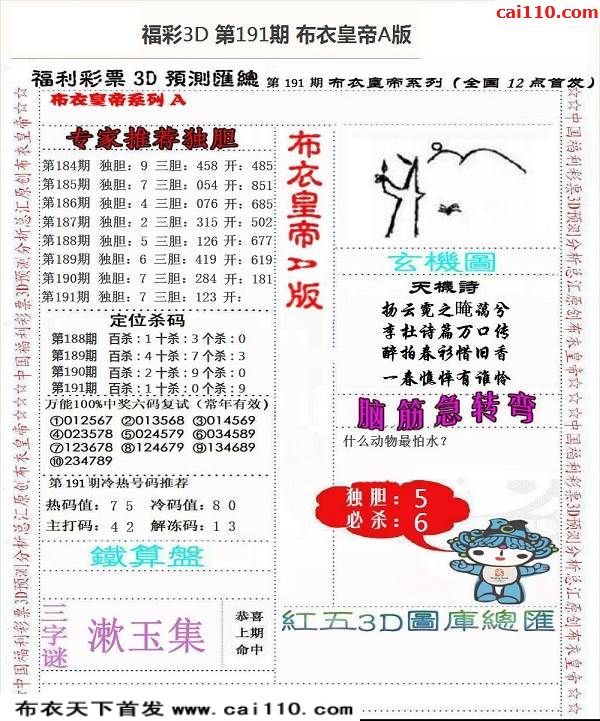 cai110.com
福彩3D 第191期 布衣皇帝A版
福利彩票3D預測匯總 第191期布衣皇帝系列(全国12点首发)
布衣皇帝系列A
专家推荐独胆
第184期 独胆:9 三胆:458 开:485
第185期 独胆:7 三胆:054 开:851
第186期 独胆:4 三胆:076 开:685
第187期 独胆:2 三胆:315 开:502
第188期 独胆:5 三胆:126 开:677
第189期 独胆:6 三胆:419 开:619
第190期 独胆:7 三胆:284 开:181
第191期 独胆:7 三胆:123 开:
定位杀码
第188期 百杀:1十杀:3个杀:0
第189期 百杀:4十杀:7个杀:3
第190期 百杀:2十杀:9个杀:0
第191期 百杀:1十杀:0个杀:9
万能100%中奖六码复试(常年有效)
①012567 ②013568 ③014569
④023578 ⑤024579 ⑥034589
⑦123678 ⑧124679 ⑨134689
⑩234789
第191期冷热号码推荐
热码值:75 冷码值:80
主打码:42 解冻码:13
鐵算盤
三字谜
漱玉集
恭喜
上期
命中
布衣皇帝A版
玄機圖
天機詩
扬云霓之晻蔼兮
李杜诗篇万口传
醉拍春衫惜旧香
一春憔悴有谁怜
脑筋急转弯
什么动物最怕水?
独胆:5
必杀:6
紅五3D圖庫總匯
☆☆中国福利彩票3D预测分析总汇原创布衣皇帝☆☆
☆☆中国福利彩票3D预测分析总汇原创布衣皇帝☆☆
布衣天下首发 www.cai110.com